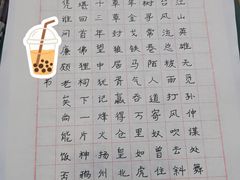 江山英雄无觅孙仲谋处舞
台风流总被雨打风吹去斜
树寻常巷陌人道寄奴曾住
年金戈铁马气吞万里如虎
草草封狼居胥赢得仓皇北
十三年望中犹记烽火扬州
堪回首佛狸祠下一片神鸦
凭谁问廉颇老矣尚能饭否
书